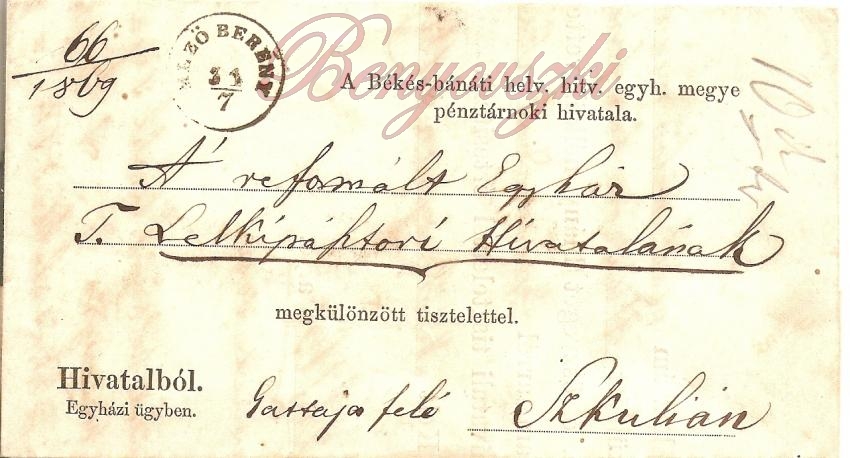 66
1869
MEZŐ BERÉNY
31
7
Benyovszki
A Békés-bánáti helv. hitv. egyh. megye
pénztárnoki hivatala.
A' reformált Egyház
T. Lelkipásztori Hivatalának
megkülönzött tisztelettel.
Hivatalból.
Egyházi ügyben.
Gattaja felé
Szkulián